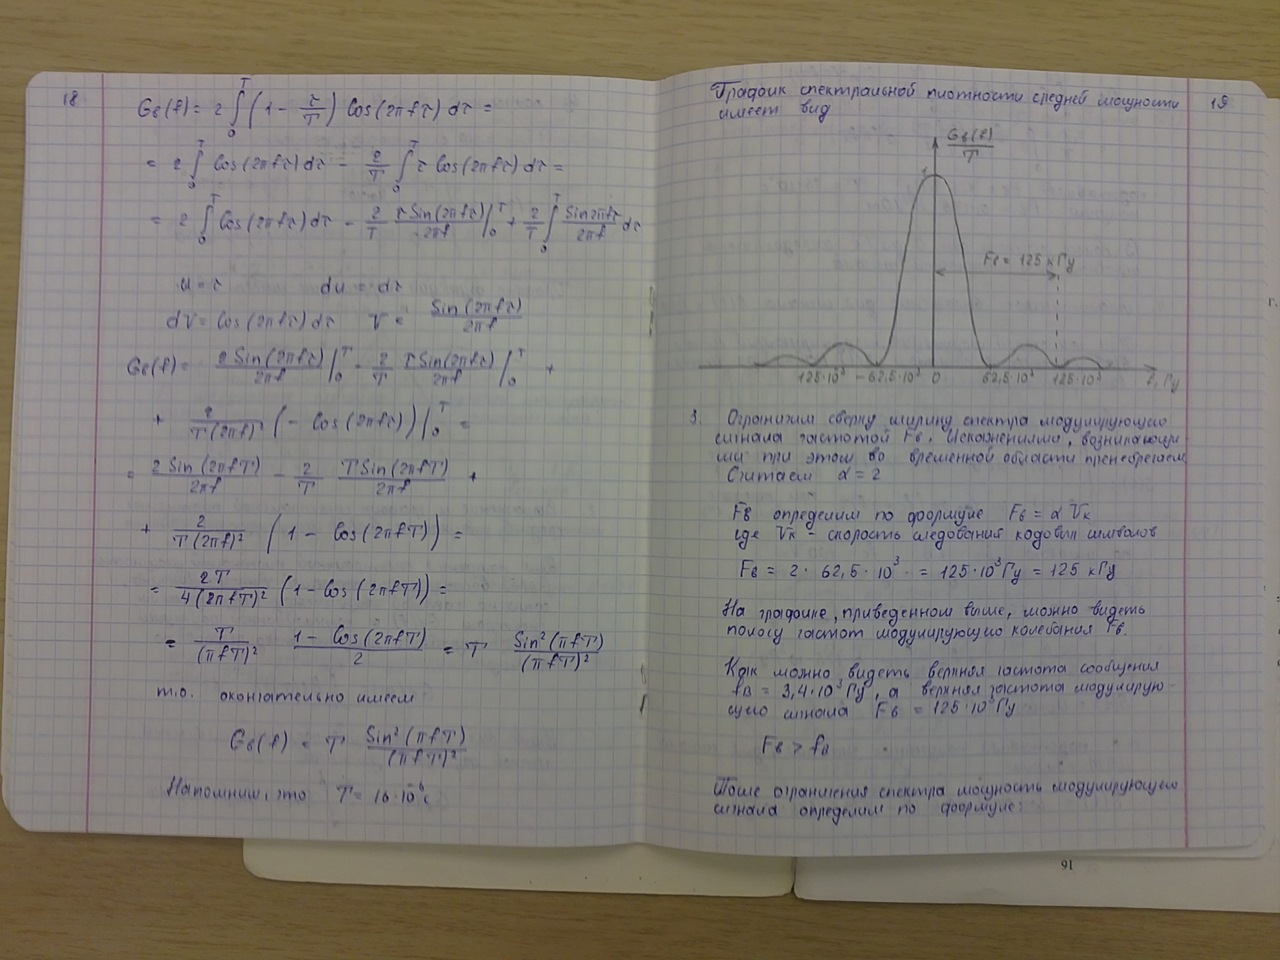 18
G_в(f) = 2 ∫_0^T (1 - τ/T) Cos(2πfτ) dτ =
= 2 ∫_0^T Cos(2πfτ) dτ - 2/T ∫_0^T τ Cos(2πfτ) dτ =
= 2 ∫_0^T Cos(2πfτ) dτ - 2/T τ Sin(2πfτ)/2πf |_0^T + 2/T ∫_0^T Sin2πfτ/2πf dτ
u = τ du = dτ
dV = Cos(2πfτ) dτ V = Sin(2πfτ)/2πf
G_в(f) = 2 Sin(2πfτ)/2πf |_0^T - 2/T τ Sin(2πfτ)/2πf |_0^T +
+ 2/T(2πf)² (- Cos(2πfτ)) |_0^T =
= 2 Sin(2πfT)/2πf - 2/T T Sin(2πfT)/2πf +
+ 2/T(2πf)² (1 - Cos(2πfT)) =
= 2T/4(2πfT)² (1 - Cos(2πfT)) =
= T/(πfT)² 1 - Cos(2πfT)/2 = T Sin²(πfT)/(πfT)²
т.о. окончательно имеем
G_в(f) = T Sin²(πfT)/(πfT)²
Напомним, что T = 16·10⁻⁶ с
19
График спектральной плотности средней мощности
имеет вид
G_в(f)/T
1
F_в = 125 кГц
125·10³ -62,5·10³ 0 62,5·10³ 125·10³ f, Гц
3. Ограничим сверху ширину спектра модулирующего
сигнала частотой F_в. Искажениями, возникающи
ми при этом во временной области пренебрегаем
Считаем α = 2
F_в определим по формуле F_в = α V_к
где V_к - скорость следования кодовых символов
F_в = 2 · 62,5 · 10³ = 125·10³ Гц = 125 кГц
На графике, приведенном выше, можно видеть
полосу частот модулирующего колебания F_в.
Как можно видеть верхняя частота сообщения
f_в = 3,4·10³ Гц, а верхняя частота модулирую-
щего сигнала F_в = 125·10³ Гц
F_в > f_в
После ограничения спектра мощность модулирующего
сигнала определим по формуле:
16